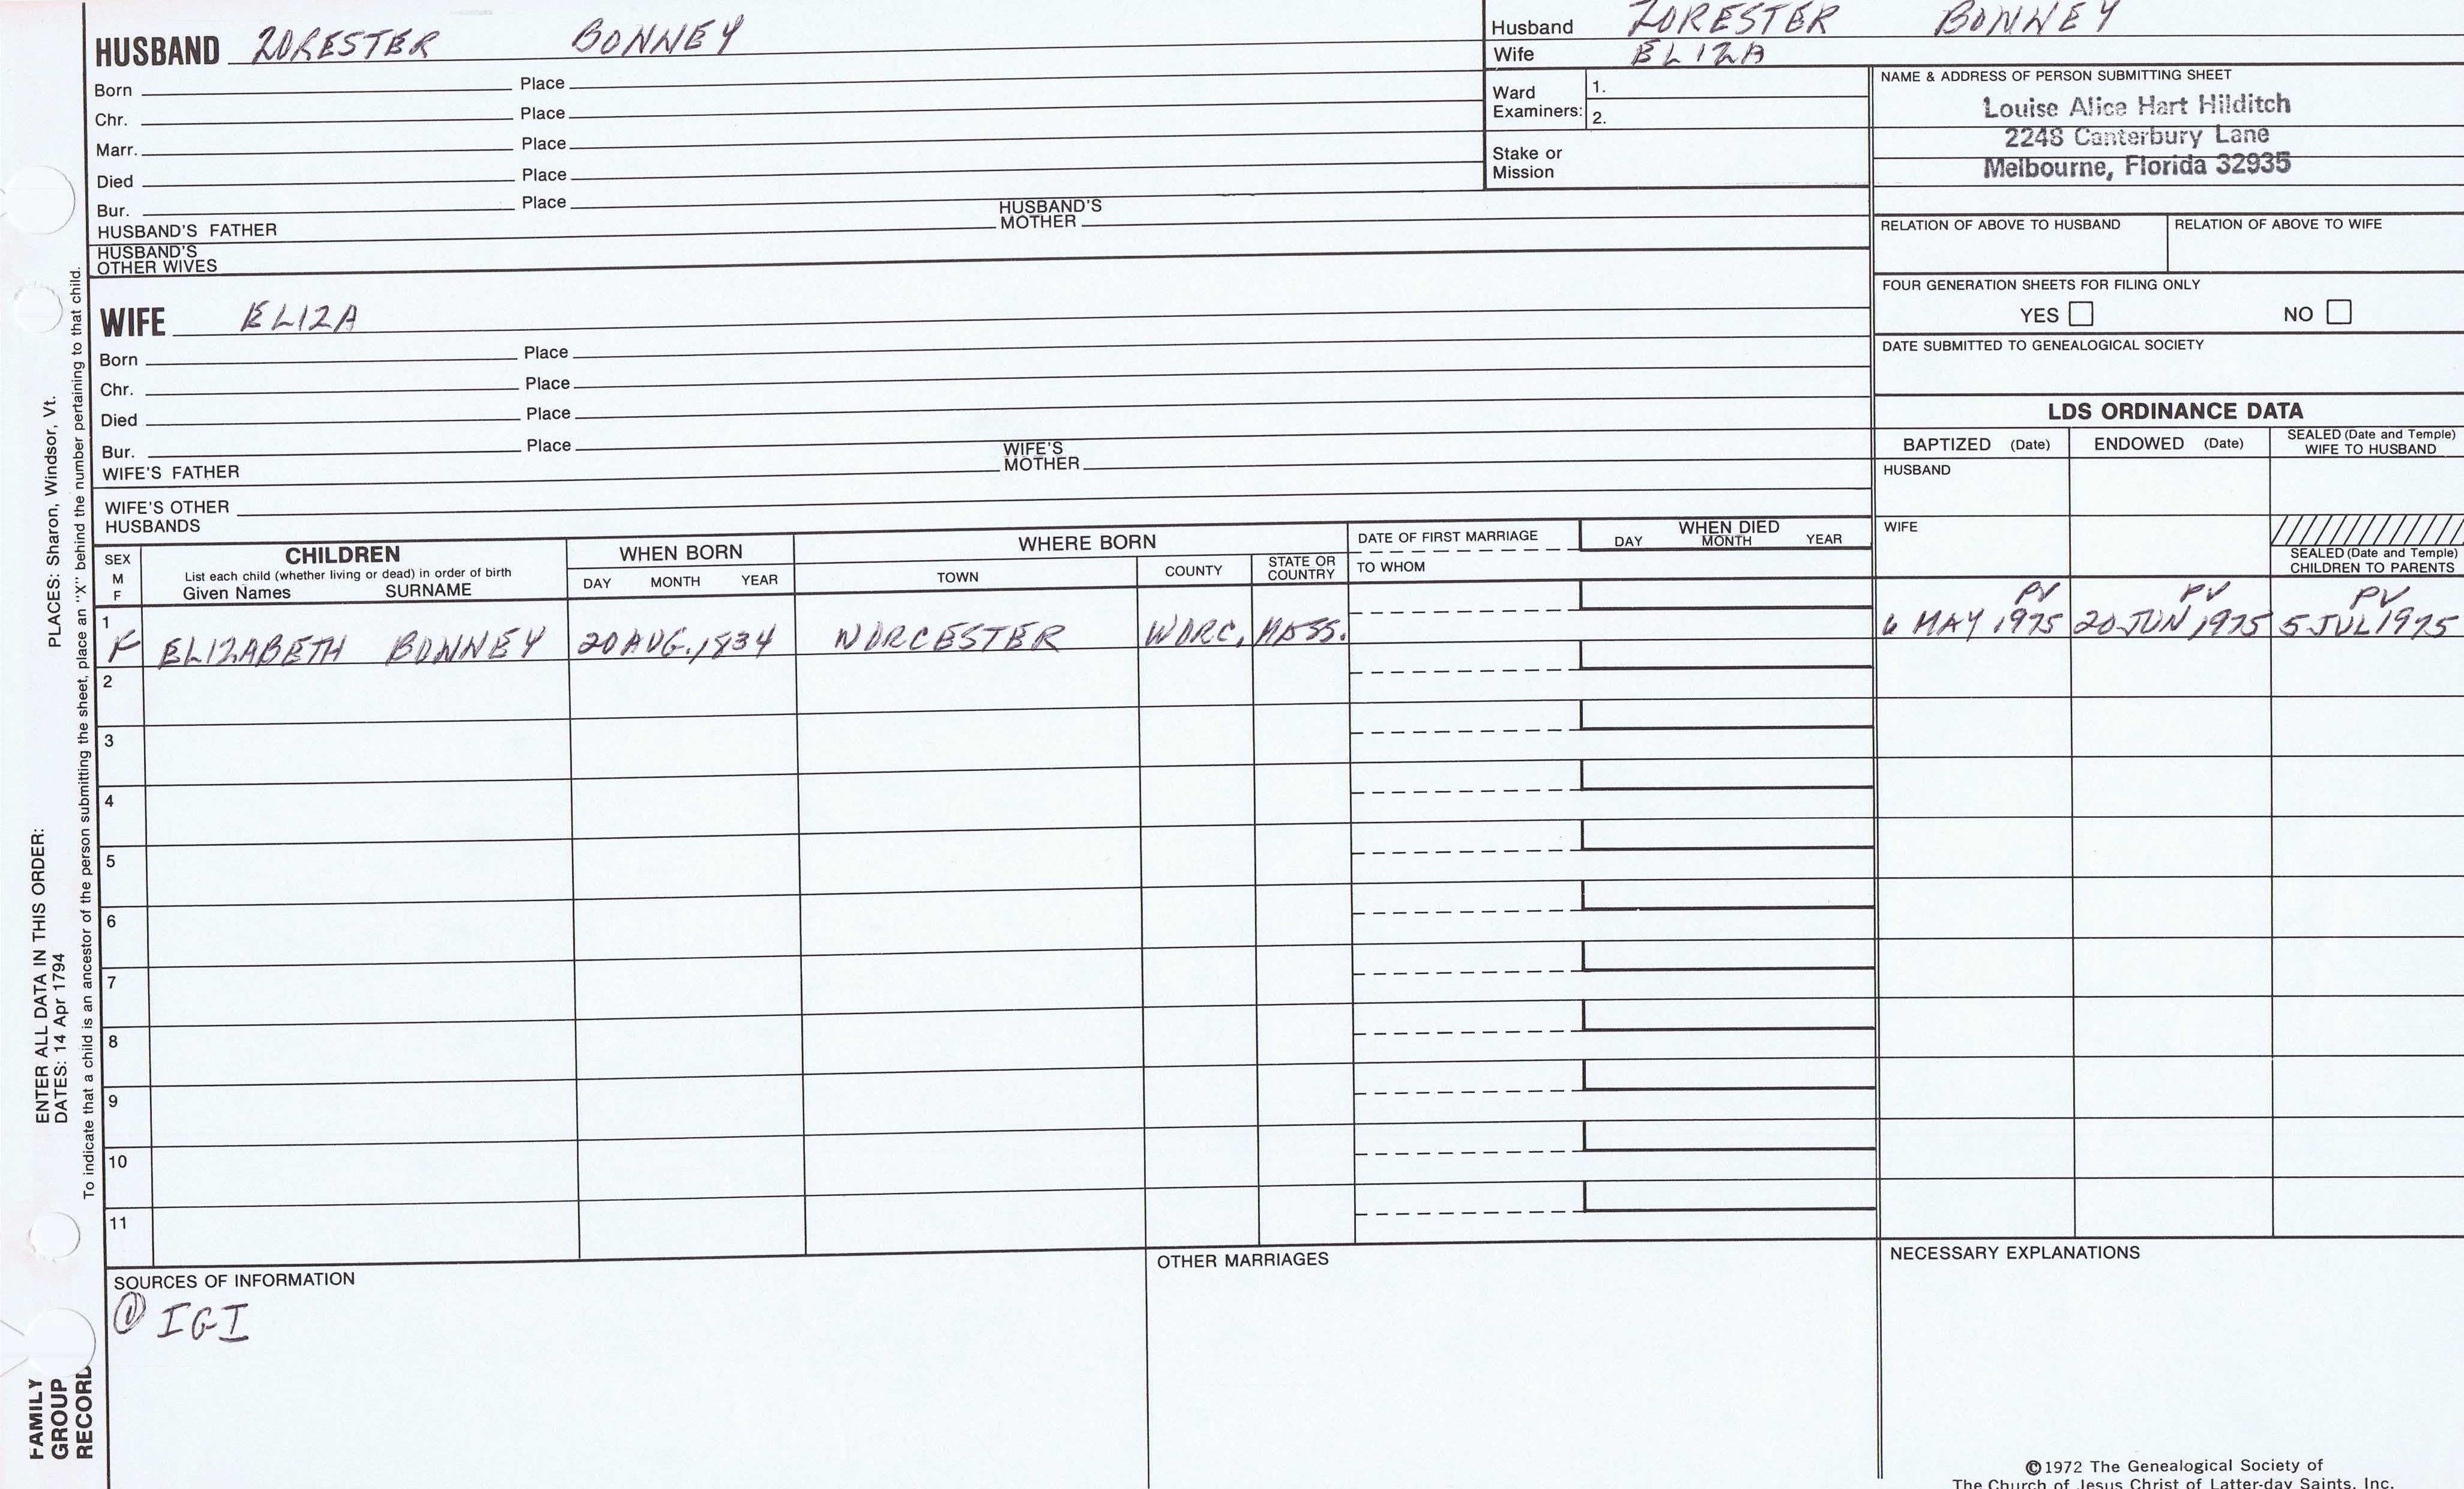 HUSBAND ZORESTER BONNEY
Born Place
Chr. Place
Marr. Place
Died Place
Bur. Place
HUSBAND'S FATHER HUSBAND'S MOTHER
HUSBAND'S OTHER WIVES
WIFE ELIZA
Born Place
Chr. Place
Died Place
Bur. Place
WIFE'S FATHER WIFE'S MOTHER
WIFE'S OTHER HUSBANDS
Husband ZORESTER BONNEY
Wife ELIZA
Ward Examiners: 1.
2.
Stake or Mission
NAME & ADDRESS OF PERSON SUBMITTING SHEET
Louise Alice Hart Hilditch
2248 Canterbury Lane
Melbourne, Florida 32935
RELATION OF ABOVE TO HUSBAND RELATION OF ABOVE TO WIFE
FOUR GENERATION SHEETS FOR FILING ONLY
YES NO
DATE SUBMITTED TO GENEALOGICAL SOCIETY
LDS ORDINANCE DATA
BAPTIZED (Date) ENDOWED (Date) SEALED (Date and Temple) WIFE TO HUSBAND
HUSBAND
WIFE
SEALED (Date and Temple) CHILDREN TO PARENTS
SEX M F
CHILDREN
List each child (whether living or dead) in order of birth
Given Names SURNAME
WHEN BORN
DAY MONTH YEAR
WHERE BORN
TOWN COUNTY STATE OR COUNTRY
DATE OF FIRST MARRIAGE
TO WHOM
WHEN DIED
DAY MONTH YEAR
PV PV PV
1 F ELIZABETH BONNEY 20 AUG. 1834 WORCESTER WORC. MASS. 6 MAY 1975 20 JUN 1975 5 JUL 1975
2
3
4
5
6
7
8
9
10
11
SOURCES OF INFORMATION
① IGI
OTHER MARRIAGES
NECESSARY EXPLANATIONS
©1972 The Genealogical Society of
The Church of Jesus Christ of Latter-day Saints, Inc.
ENTER ALL DATA IN THIS ORDER:
DATES: 14 Apr 1794
PLACES: Sharon, Windsor, Vt.
To indicate that a child is an ancestor of the person submitting the sheet, place an "X" behind the number pertaining to that child.
FAMILY
GROUP
RECORD